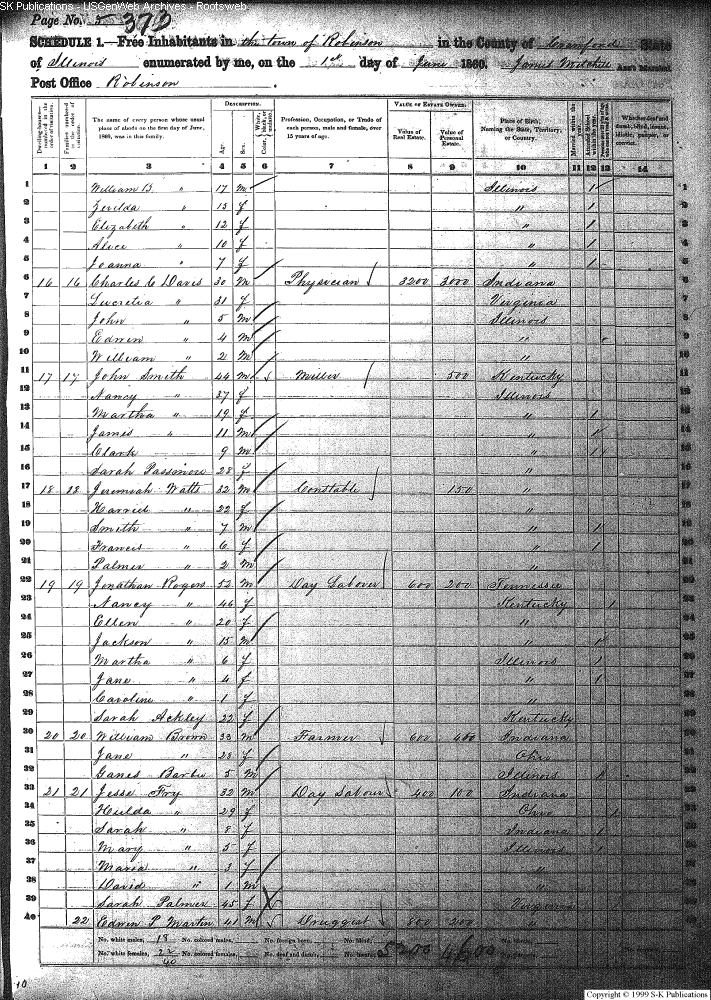 SK Publications - USGenWeb Archives - Rootsweb
Page No. 5 372
SCHEDULE 1.—Free Inhabitants in the town of Robinson in the County of Crawford State
of Illinois enumerated by me, on the 1st day of June 1860. James Ass't Marshal.
Post Office Robinson
Dwelling-houses—numbered in the order of visitation.
Families numbered in the order of visitation.
The name of every person whose usual place of abode on the first day of June, 1860, was in this family.
DESCRIPTION.
Age.
Sex.
Color, White, black, or mulatto.
Profession, Occupation, or Trade of each person, male and female, over 15 years of age.
VALUE OF ESTATE OWNED.
Value of Real Estate.
Value of Personal Estate.
Place of Birth, Naming the State, Territory, or Country.
Married within the year.
Whether deaf and dumb, blind, insane, idiotic, pauper, or convict.
1 2 3 4 5 6 7 8 9 10 11 12 13 14
1 William B " 17 m Illinois 1 1
2 Zerilda " 13 f " 1 2
3 Elizabeth " 12 f " 1 3
4 Alice " 10 f " 1 4
5 Joanna " 7 f " 1 5
6 16 16 Charles C Davis 30 m Physician 3200 3000 Indiana 6
7 Lucretia " 31 f Virginia 7
8 John " 5 m Illinois 8
9 Edwin " 4 m " 9
10 William " 2 m " 10
11 17 17 John Smith 44 m Miller 500 Kentucky 11
12 Nancy " 37 f Illinois 12
13 Martha " 19 f " 1 13
14 James " 11 m " 1 14
15 Clark " 9 m " 1 15
16 Sarah Passmore 28 f " 16
17 18 18 Jeremiah Watts 32 m Constable 150 " 17
18 Harriet " 22 f " 18
19 Smith " 7 m " 1 19
20 Francis " 6 f " 1 20
21 Palmer " 2 m " 21
22 19 19 Jonathan Rogers 52 m Day Labour 600 200 Tennessee 22
23 Nancy " 46 f Kentucky 1 23
24 Ellen " 20 f " 24
25 Jackson " 15 m " 1 25
26 Martha " 6 f Illinois 1 26
27 Jane " 4 f " 1 27
28 Caroline " 1 f " 28
29 Sarah Ackley 22 f Kentucky 29
30 20 20 William Brown 33 m Farmer 600 400 Indiana 30
31 Jane " 28 f Ohio 31
32 Barbee 5 m Illinois 1 32
33 21 21 Jesse Fry 32 m Day Labour 400 100 Indiana 33
34 Hulda " 29 f Ohio 1 34
35 Sarah " 8 f Indiana 1 35
36 Mary " 5 f Illinois 1 36
37 Maria " 3 f " 37
38 David " 1 m " 38
39 Sarah Palmer 45 f Virginia 39
40 22 Edwin P Martin 41 m Druggist 800 200 " 40
No. white males, 18 No. colored males, No. foreign born, No. blind,
No. white females, 22 No. colored females, No. deaf and dumb, No. insane, 5200 4600
40
10
Copyright © 1999 S-K Publications